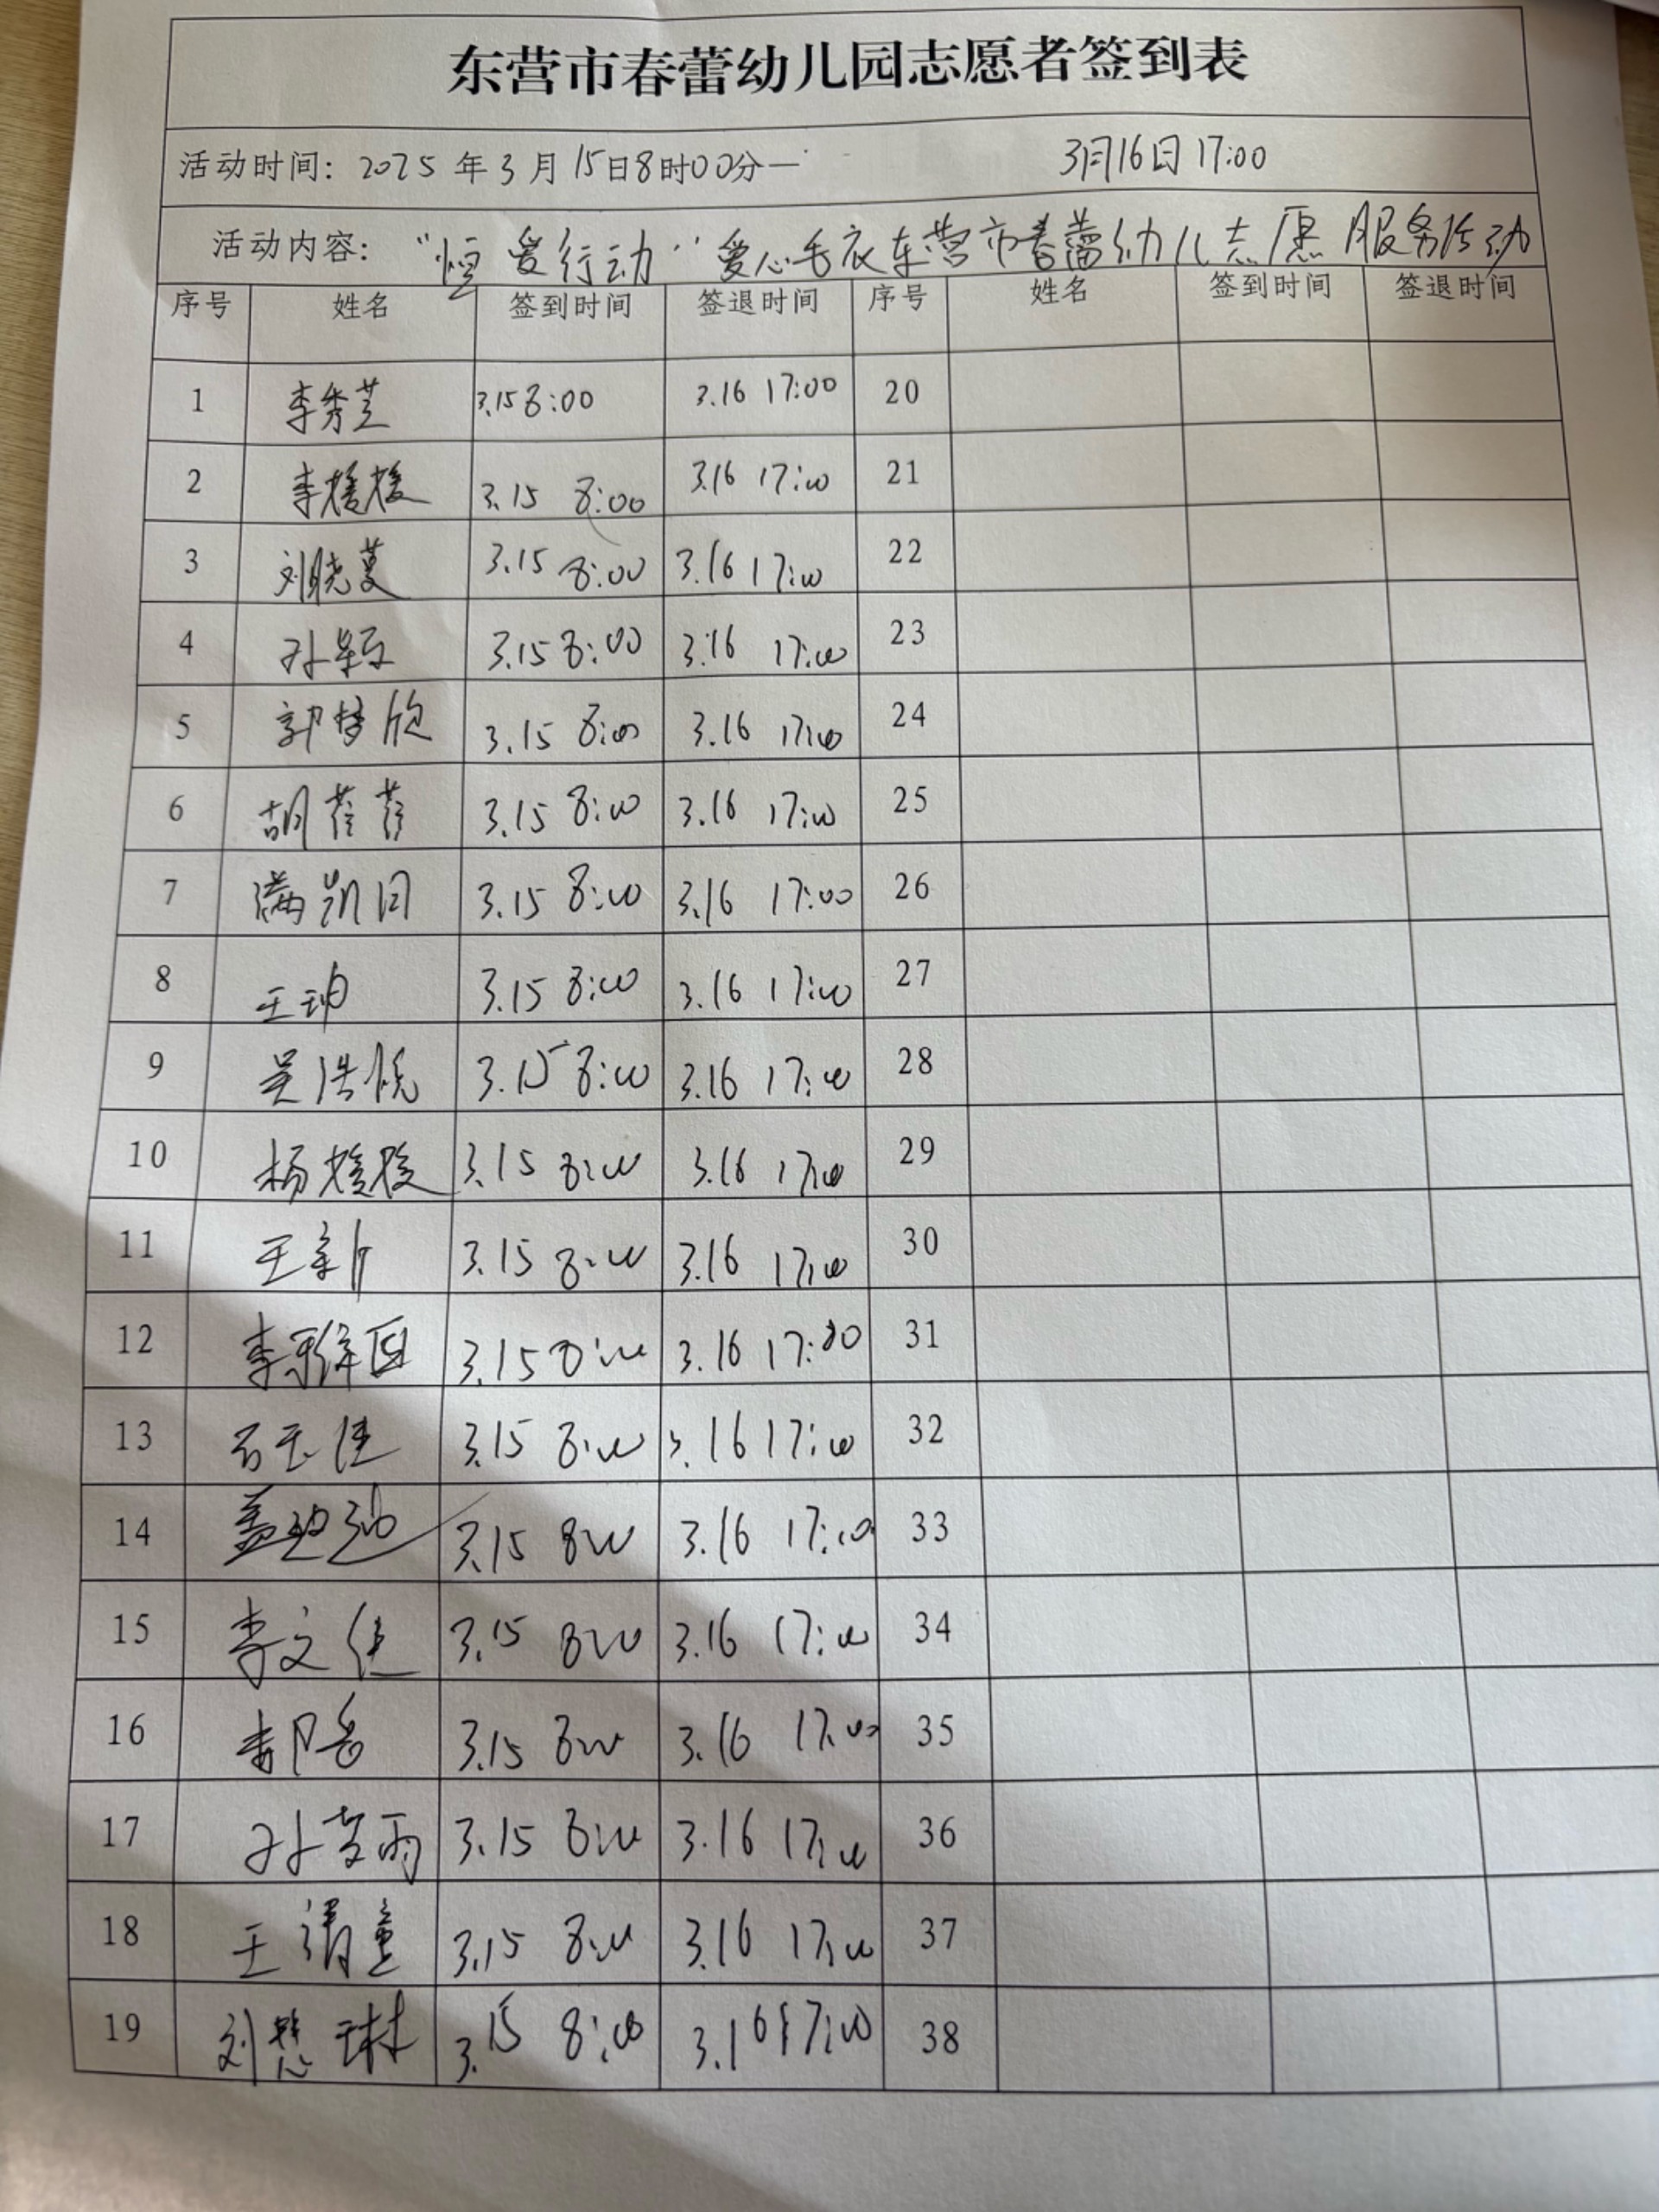 东营市春蕾幼儿园志愿者签到表
活动时间：2025年3月15日8时00分— 3月16日17:00
活动内容：“恒爱行动”爱心毛衣东营市春蕾幼儿志愿服务活动
序号 姓名 签到时间 签退时间 序号 姓名 签到时间 签退时间
1 李秀芝 3.15 8:00 3.16 17:00 20
2 李媛媛 3.15 8:00 3.16 17:00 21
3 刘晓蔓 3.15 8:00 3.16 17:00 22
4 孙颖 3.15 8:00 3.16 17:00 23
5 郭梦欣 3.15 8:00 3.16 17:00 24
6 胡 3.15 8:00 3.16 17:00 25
7 满凯 3.15 8:00 3.16 17:00 26
8 王 3.15 8:00 3.16 17:00 27
9 吴浩悦 3.15 8:00 3.16 17:00 28
10 杨媛媛 3.15 8:00 3.16 17:00 29
11 王新 3.15 8:00 3.16 17:00 30
12 李 3.15 8:00 3.16 17:00 31
13 石玉佳 3.15 8:00 3.16 17:00 32
14 盖 3.15 8:00 3.16 17:00 33
15 李文佳 3.15 8:00 3.16 17:00 34
16 3.15 8:00 3.16 17:00 35
17 孙 雨 3.15 8:00 3.16 17:00 36
18 王清童 3.15 8:00 3.16 17:00 37
19 刘慧琳 3.15 8:00 3.16 17:00 38